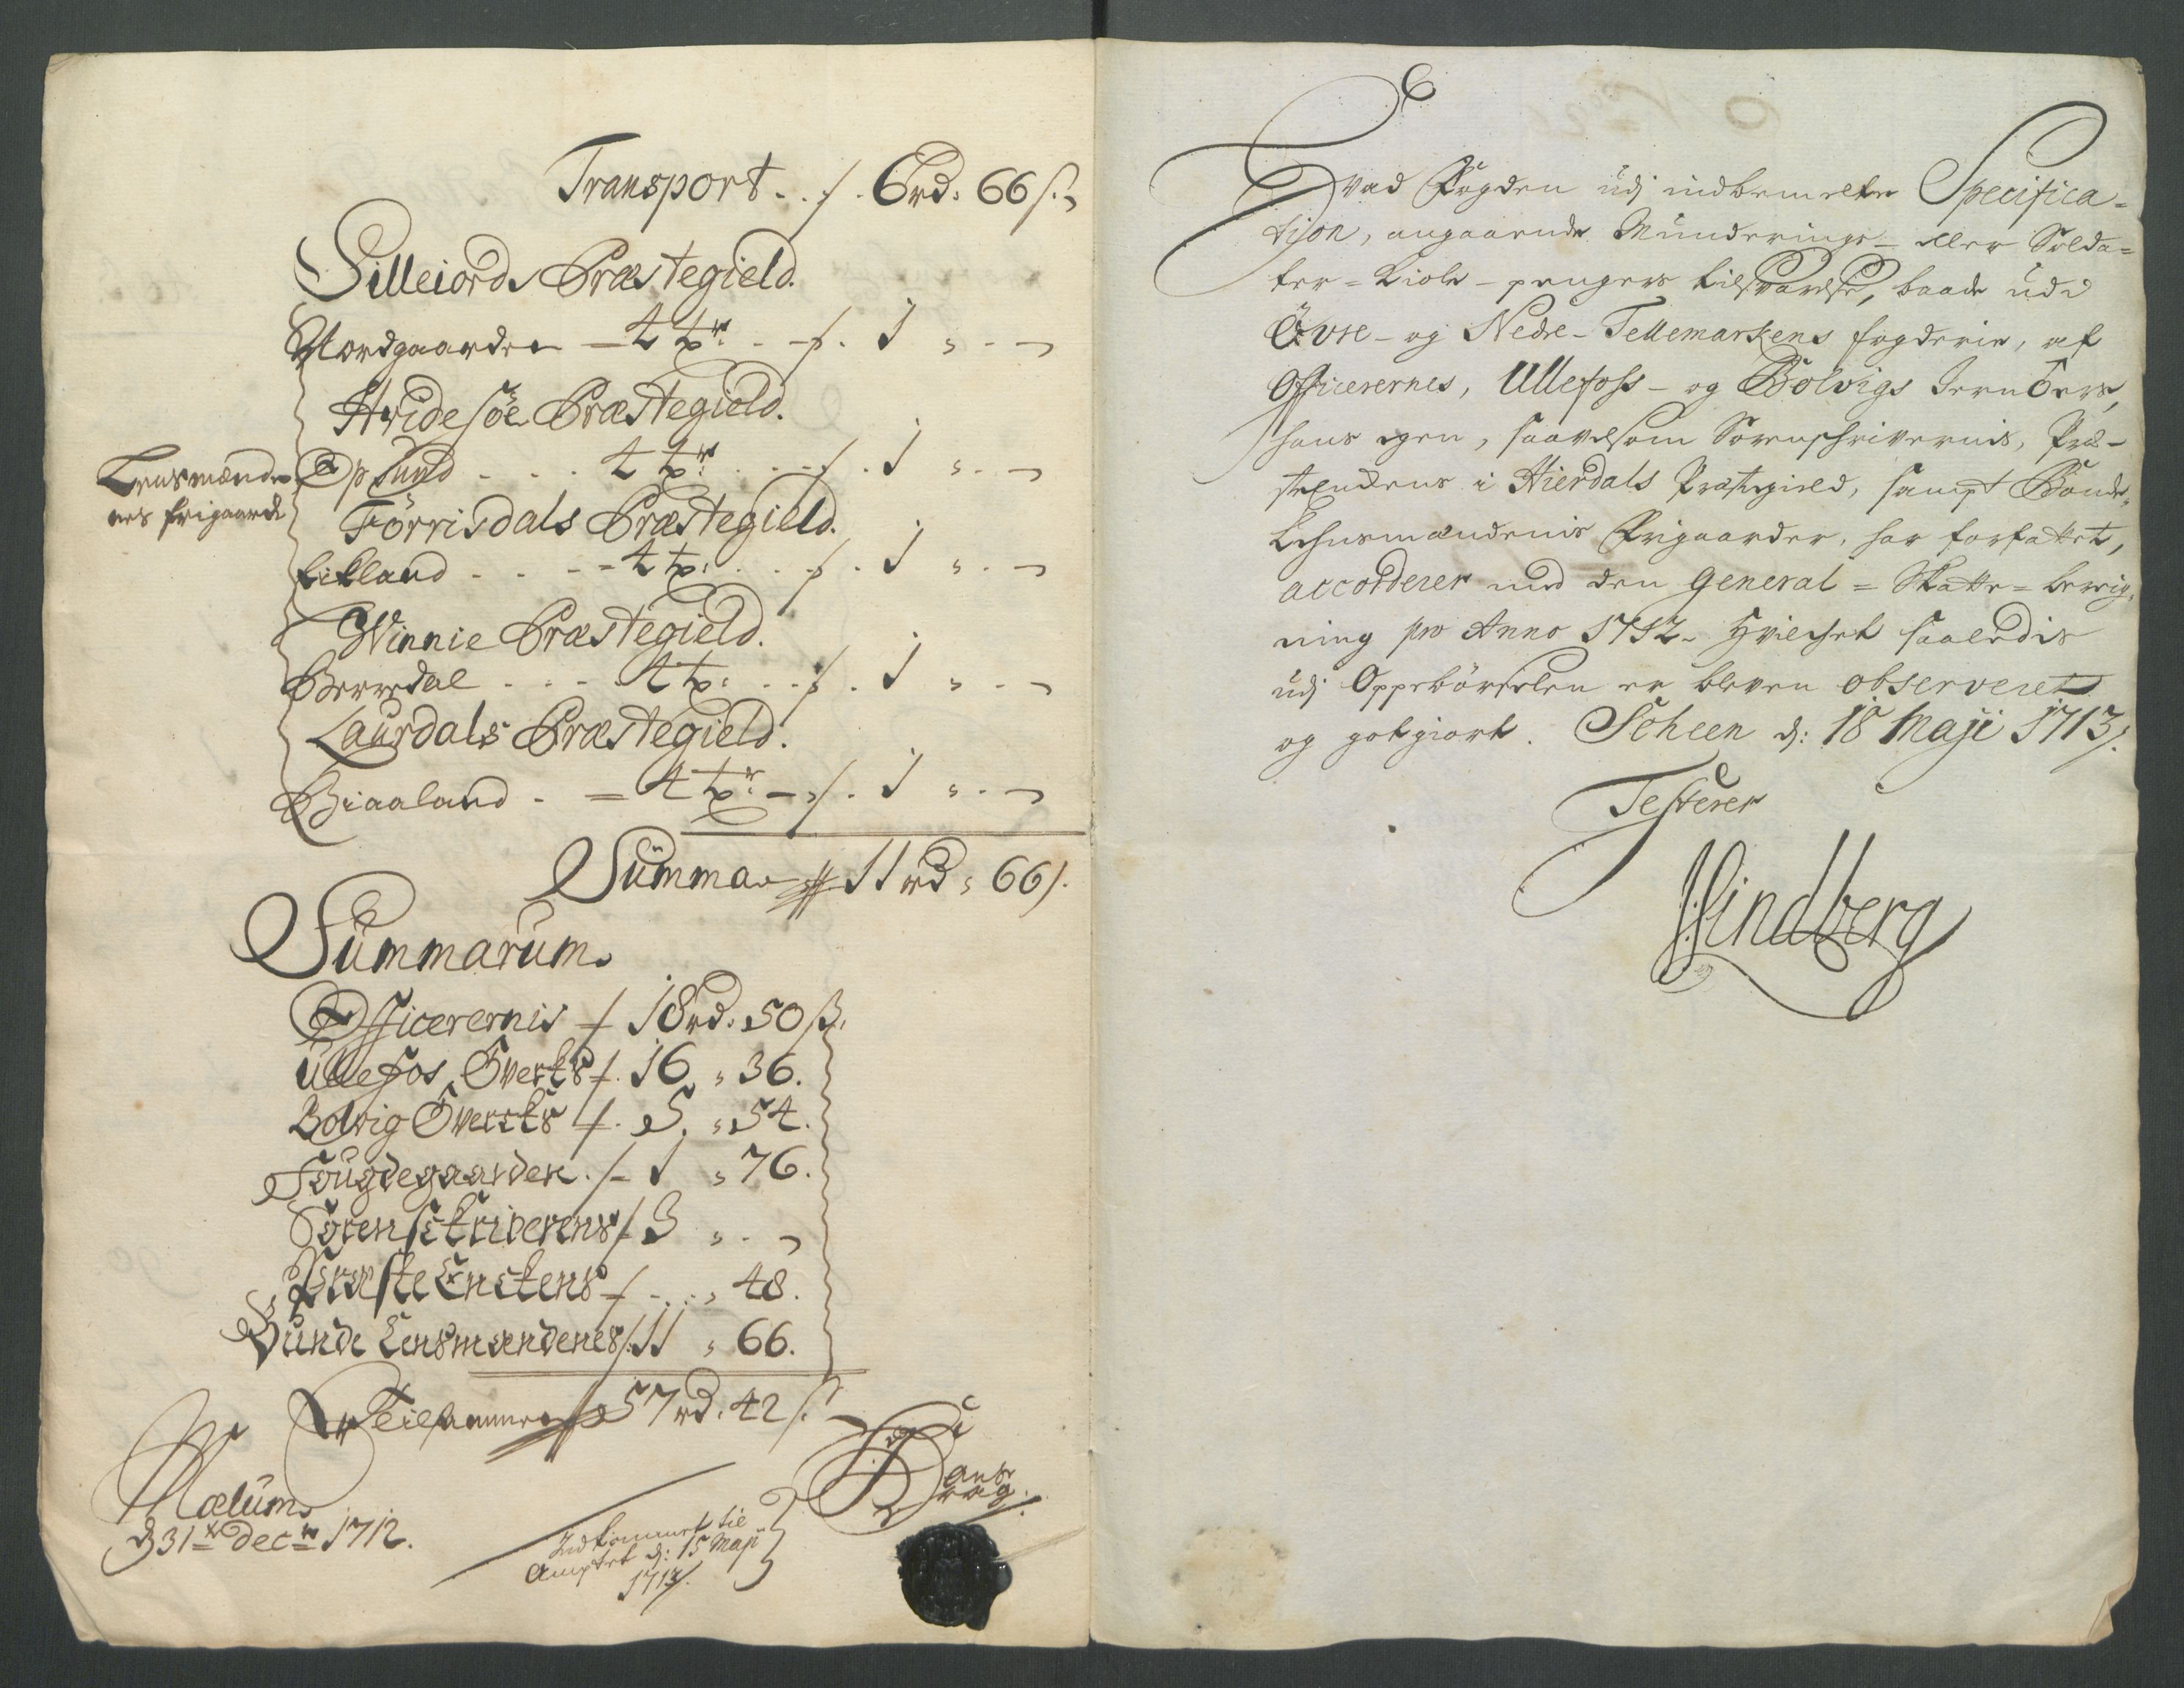 Transport - . /. 6 rd: 66 s.
Silleiords Præstegield.
Nordgaarden - 4 tr. - /. 1 " . -
Hvidesöe Præstegield.
Lensmænde-
nes frigaarde
Opsund . . . 4 tr. . . - /. 1 " . -
Förrisdals Præstegield.
Eikland . . . - 4 t: . . /. 1 " . -
Winnie Præstegield.
Berrdal . . . 4 t: . . /. 1 " . -
Laurdals Præstegield.
Biaaland . = 4 tr. - /. 1 " . -
Summa // 11 rd " 66 s.
Summarum.
Officerernis /. 18 rd. 50 s.
Ullefos Værcks /. 16 " 36.
Bolvig Værcks /. 5. " 54.
Fougdegaarden. /. 1 " 76.
Sorenschriverens /. 3 " . -
Præste Enckens /. - . . " 48.
Bunde Lensmændenes /. 11 " 66.
Er Tilsammen // 57 rd. 42 s.
Mælum
d 31te Decr 1712.
Indkommet til
Amptet d: 15 Maji
1713/.
Hans
Hvad Fogden udj indbemelte Specifica-
tion, angaaende Munderings- eller Solda-
ter-Kiole-pengers tilsvarelse, baade udi
Övre- og Nedre-Tellemarkens fogderie, af
Officerernes, Ullefoss- og Bolvigs Jernværs,
hans egen, saavelsom Sorenschrivernis, Præ-
steEnkens i Hierdals Præstegield, sampt Bonde-
Lehnsmændenis Frigaarder, har forfattet,
accorderer med den General-Skatte-bereig-
ning pro Anno 1712. Hvilchet saaledis
udj Oppebörselen er bleven observeret
og gotgiort. Scheen d: 18 Maji 1713/.
Testerer
Lindberg